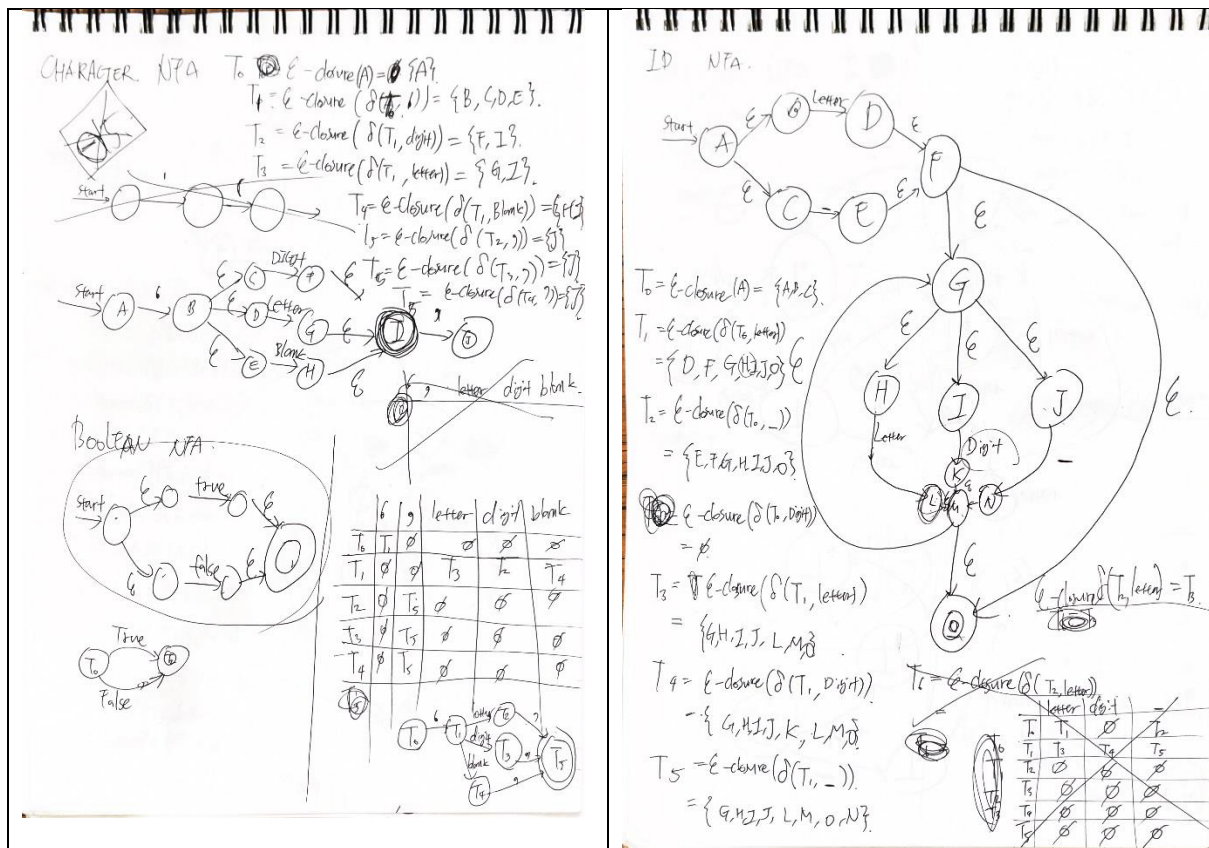 CHARACTER NFA T₀ ε-closure(A)= {A}.
T₁ = ε-closure(δ(T₀, ‘)) = {B, C, D, E}.
T₂ = ε-closure(δ(T₁, digit)) = {F, I}.
T₃ = ε-closure(δ(T₁, letter)) = {G, I}.
T₄ = ε-closure(δ(T₁, Blank)) = {H, I}
T₅ = ε-closure(δ(T₂, ’)) = {J}
T₅ = ε-closure(δ(T₃, ’)) = {J}
T₅ = ε-closure(δ(T₄, ’)) = {J}
start
Start A ‘ B ε C Digit F ε
ε D Letter G ε I ’ J
ε E Blank H ε
’ letter digit blank
Boolean NFA.
start ε true ε
ε false ε
True
T₀
False
‘ ’ letter digit blank
T₀ T₁ ∅ ∅ ∅ ∅
T₁ ∅ ∅ T₃ T₂ T₄
T₂ ∅ T₅ ∅ ∅ ∅
T₃ ∅ T₅ ∅ ∅ ∅
T₄ ∅ T₅ ∅ ∅ ∅
T₀ ‘ T₁ letter T₂ ’
digit T₃ ’ T₅
blank T₄ ’
ID NFA.
Start A ε B Letter D ε F
ε C _ E ε
ε
G
ε ε ε
H I J
Letter Digit _
K
L M N
ε ε
O
T₀ = ε-closure(A) = {A,B,C}.
T₁ = ε-closure(δ(T₀, letter))
= {D, F, G, H, I, J, O}
T₂ = ε-closure(δ(T₀, _))
= {E, F, G, H, I, J, O}
= ε-closure(δ(T₀, Digit))
= ∅
T₃ = ε-closure(δ(T₁, letter))
= {G, H, I, J, L, M, O}
T₄ = ε-closure(δ(T₁, Digit))
= {G, H, I, J, K, L, M, O}
T₅ = ε-closure(δ(T₁, _))
= {G, H, I, J, L, M, O, N}
ε-closure δ(T₂, letter) = T₃.
T₆ = ε-closure(δ(T₂, letter))
letter digit _
T₀ T₁ ∅ T₂
T₁ T₃ T₄ T₅
T₂ ∅ ∅ ∅
T₃ ∅ ∅ ∅
T₄ ∅ ∅ ∅
T₅ ∅ ∅ ∅